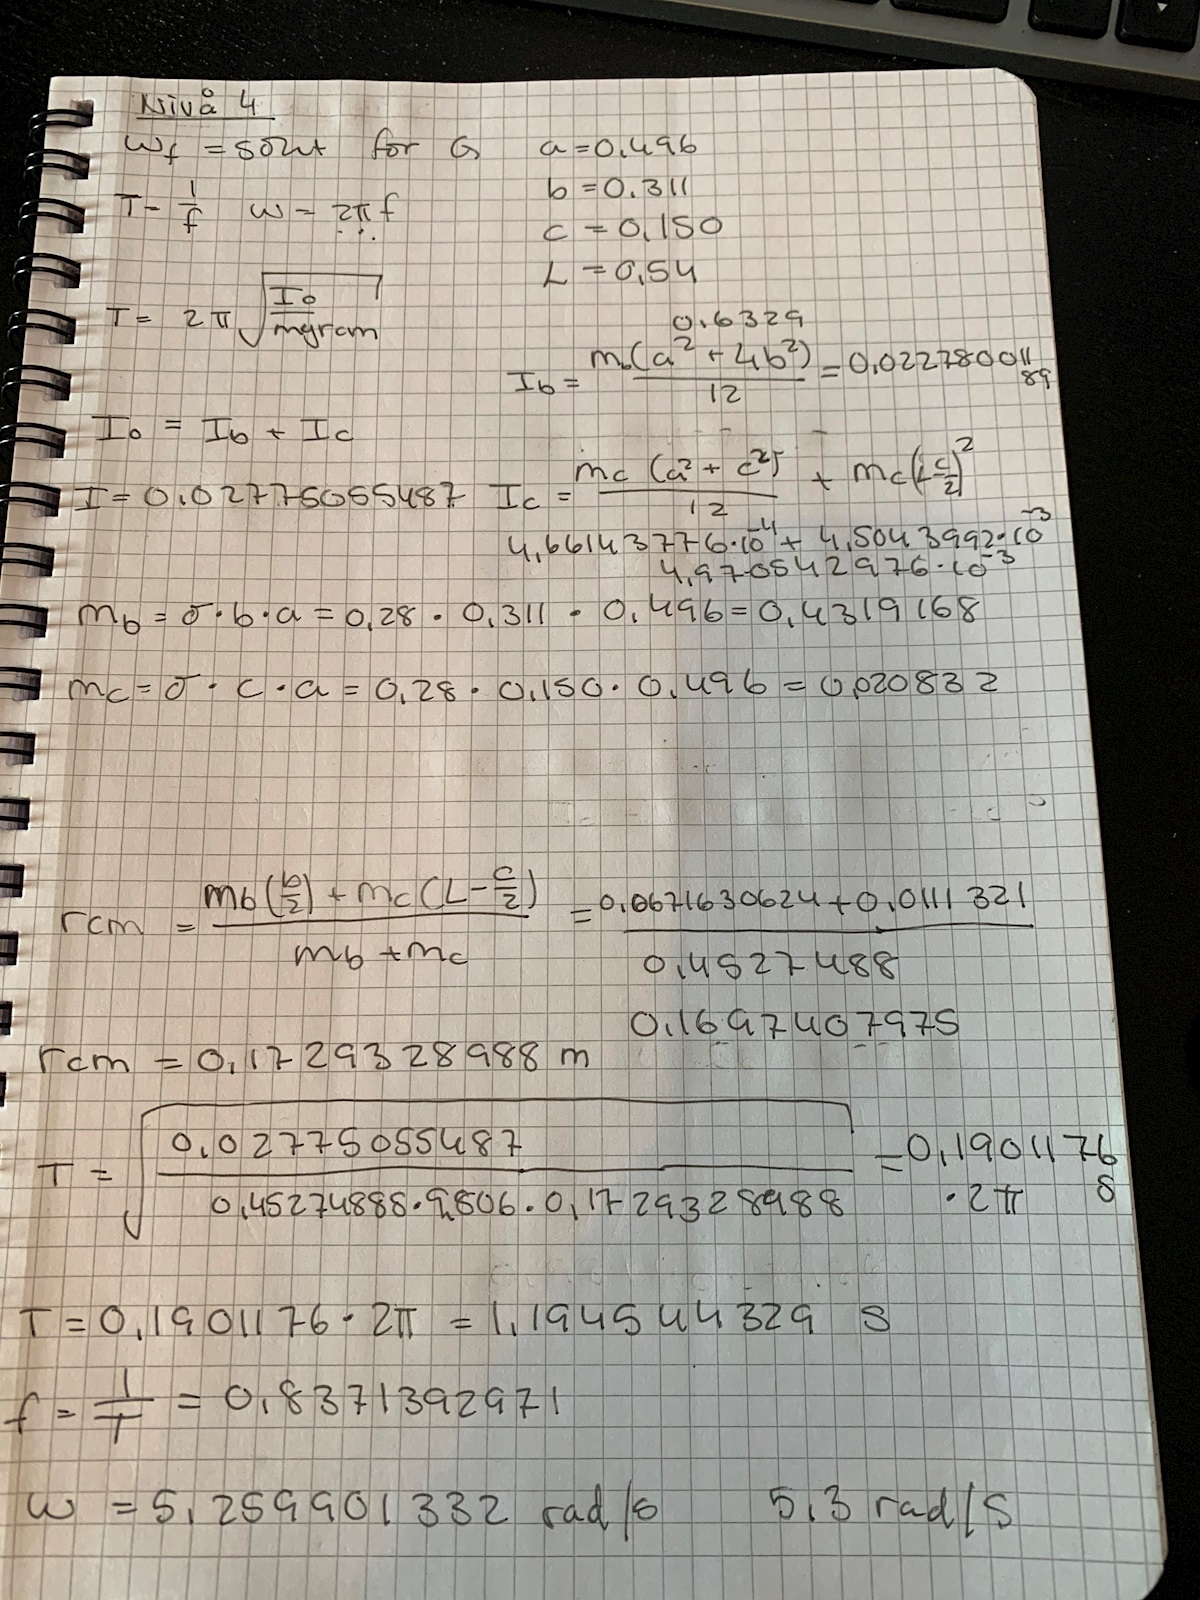 Nivå 4
ωf = sökt for G a=0,496
T = 1/f ω = 2πf b=0.311
c = 0,150
L = 0,54
T = 2π √(Io/mgrcm)
0.6329
Ib = mb(a² + 4b²)/12 = 0,02278001189
Io = Ib + Ic
I = 0.02775055487 Ic = mc (a² + c²)/12 + mc(L-c/2)²
4,661437776·10⁻⁴ + 4,5043992·10⁻³
4,970542976·10⁻³
mb = σ·b·a = 0,28 · 0,311 · 0,496 = 0,4319168
mc = σ · c · a = 0,28 · 0,150 · 0,496 = 0,020832
rcm = (mb(b/2) + mc(L-c/2))/(mb + mc) = (0,0671630624 + 0,0111321)/0,4527488
0,1697407975
rcm = 0,1729328988 m
T = √(0,02775055487/(0,45274888·9,806·0,1729328988)) = 0,1901176 · 2π s
T = 0,1901176 · 2π = 1,194544329 s
f = 1/T = 0,8371392971
ω = 5,259901332 rad/s 5,3 rad/s